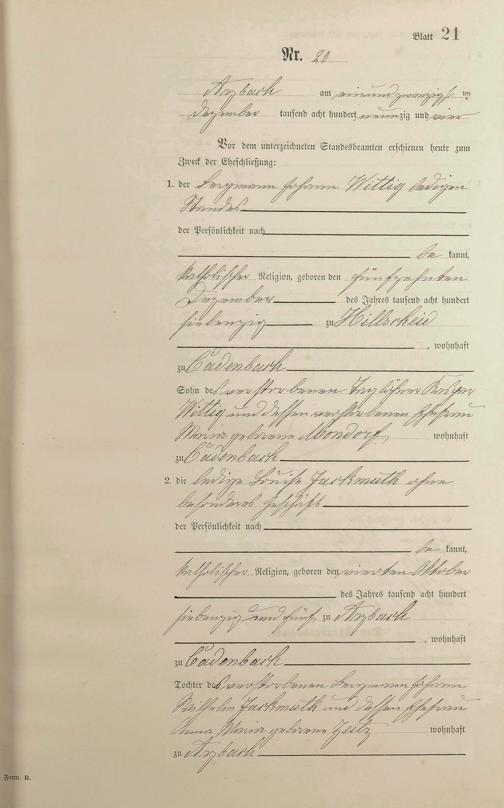 Blatt 21
Nr. 20
Arzbach am einundzwanzigsten
Dezember tausend acht hundert neunzig und vier
Vor dem unterzeichneten Standesbeamten erschienen heute zum
Zweck der Eheschließung:
1. der Bergmann Johann Wittig ledigen
Standes
der Persönlichkeit nach
be kannt,
katholischer Religion, geboren den fünfzehnten
Dezember des Jahres tausend acht hundert
siebenzig zu Hillscheid
, wohnhaft
zu Cadenbach
Sohn des verstorbenen Taglöhner
Wittig und dessen verstorbenen Ehefrau
Maria geborene Mondorf wohnhaft
zu Cadenbach
2. die ledige Louise Jackmuth ohne
besonderes Geschäft
der Persönlichkeit nach
be kannt,
katholischer Religion, geboren den vierten Oktober
des Jahres tausend acht hundert
siebenzig und fünf zu Arzbach
, wohnhaft
zu Cadenbach
Tochter des verstorbenen Bergmann Johann
Wilhelm Jackmuth und dessen Ehefrau
Anna Maria geborene Zeitz wohnhaft
zu Arzbach
Form. B.